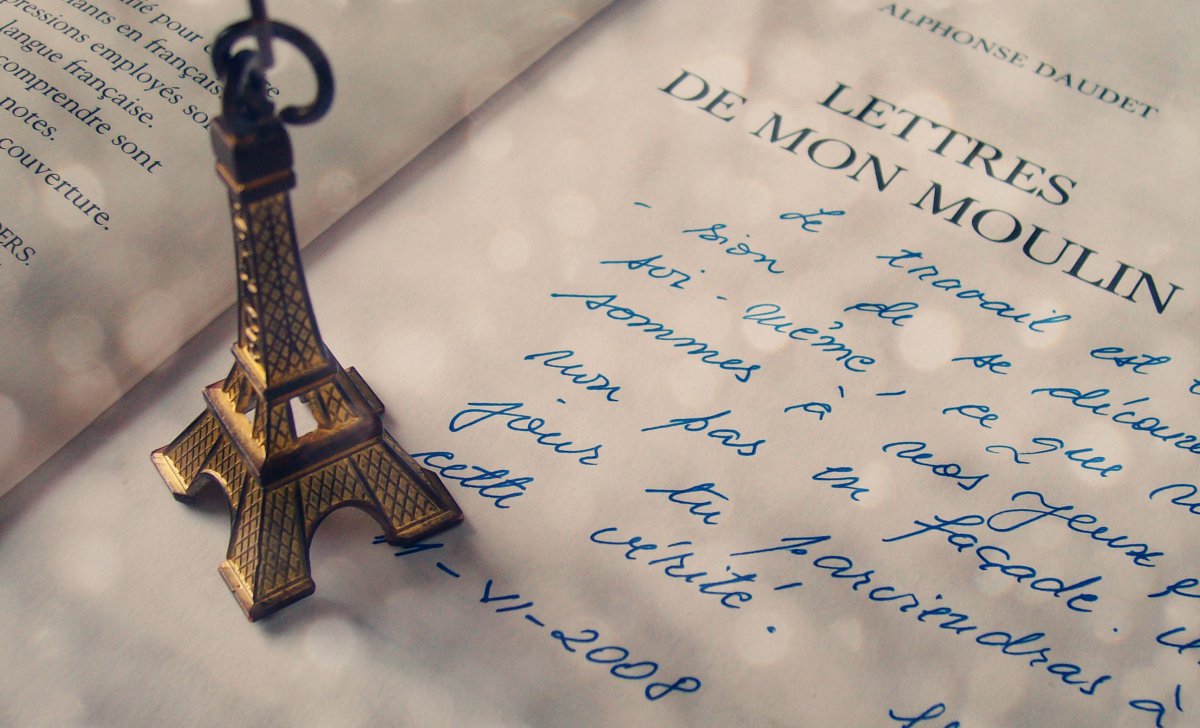 pour
en français
employés
langue française.
comprendre sont
notes.
couverture.
ALPHONSE DAUDET
LETTRES
DE MON MOULIN
Le travail est
- sion de se
soi-même, ce que
sommes à nos yeux
non pas en façade.
jour tu parviendras à
cette vérité.
11-VI-2008